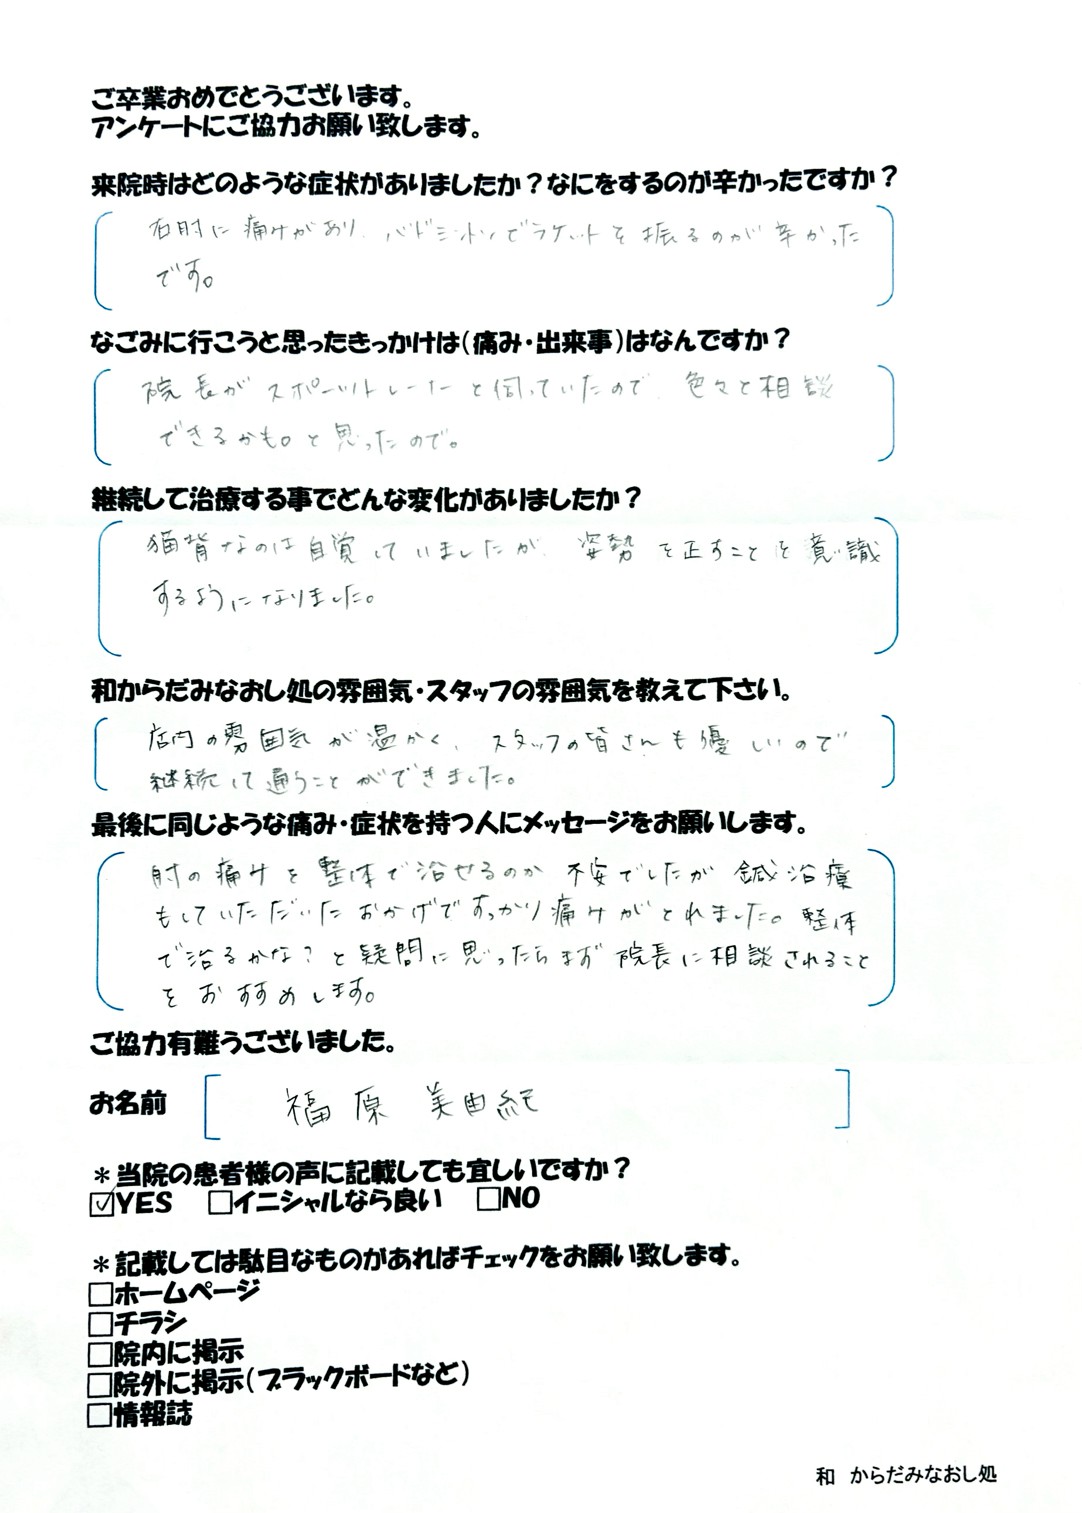 ご卒業おめでとうございます。
アンケートにご協力お願い致します。
来院時はどのような症状がありましたか？なにをするのが辛かったですか？
右肘に痛みがあり、バドミントンでラケットを振るのが辛かった
です。
なごみに行こうと思ったきっかけは（痛み・出来事）はなんですか？
院長がスポーツトレーナーと伺っていたので、色々と相談
できるかも。と思ったので。
継続して治療する事でどんな変化がありましたか？
猫背なのは自覚していましたが、姿勢を正すことを意識
するようになりました。
和からだみなおし処の雰囲気・スタッフの雰囲気を教えて下さい。
店内の雰囲気が温かく、スタッフの皆さんも優しいので
継続して通うことができました。
最後に同じような痛み・症状を持つ人にメッセージをお願いします。
肘の痛みを整体で治せるのか不安でしたが鍼治療
もしていただいたおかげですっかり痛みがとれました。整体
で治るかな？と疑問に思ったらまず院長に相談されること
をおすすめします。
ご協力有難うございました。
お名前 福原 美由紀
＊当院の患者様の声に記載しても宜しいですか？
☑YES □イニシャルなら良い □NO
＊記載しては駄目なものがあればチェックをお願い致します。
□ホームページ
□チラシ
□院内に掲示
□院外に掲示（ブラックボードなど）
□情報誌
和 からだみなおし処